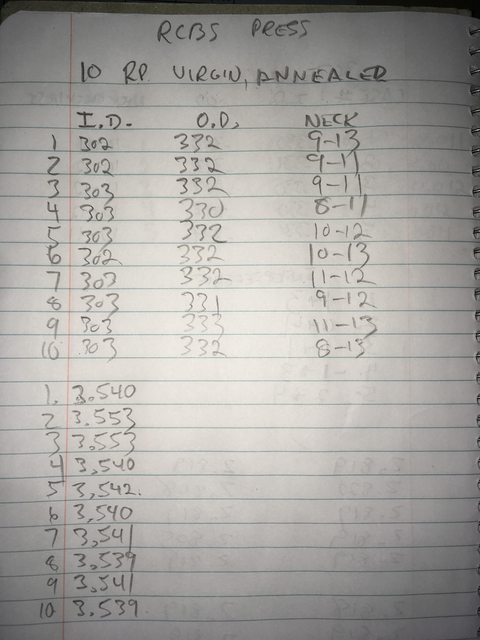 RCBS PRESS
10 RP VIRGIN, ANNEALED
I.D. O.D. NECK
1 302 332 9-13
2 302 332 9-11
3 303 332 9-11
4 303 330 8-11
5 303 332 10-12
6 302 332 10-13
7 303 332 11-12
8 303 331 9-12
9 303 333 11-13
10 303 332 8-13
1. 3.540
2 3.553
3 3.553
4 3.540
5 3,542.
6 3,540
7 3,541
8 3,539
9 3,541
10 3.539